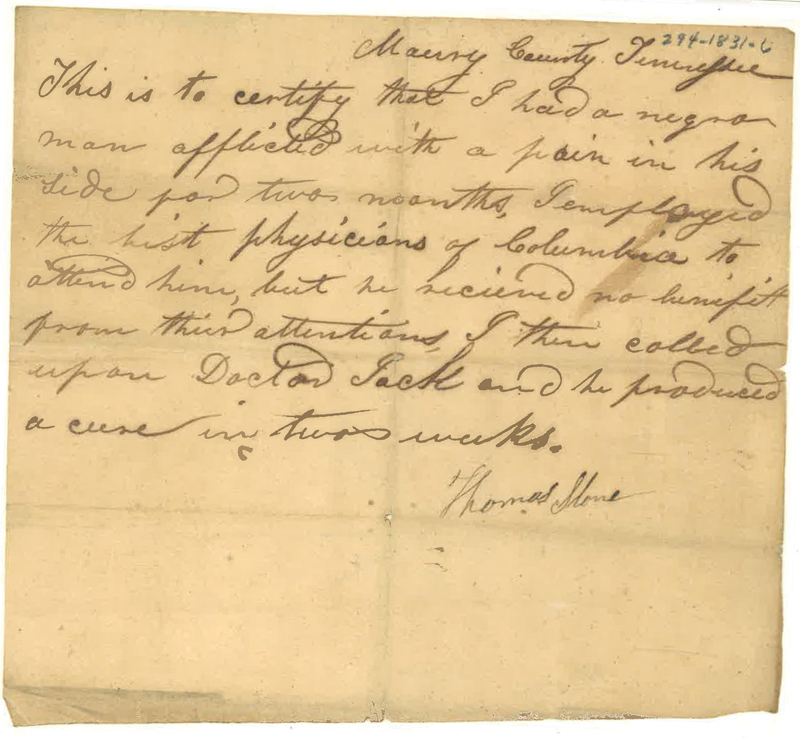 294-1831-6
Maury County Tennessee
This is to certify that I had a negro
man afflicted with a pain in his
side for two moonths, I employed
the best physicians of Columbia to
attend him, but he recieved no benifit
from their attentions, I then called
upon Doctor Jack and he produced
a cure in two weeks.
Thomas Stone